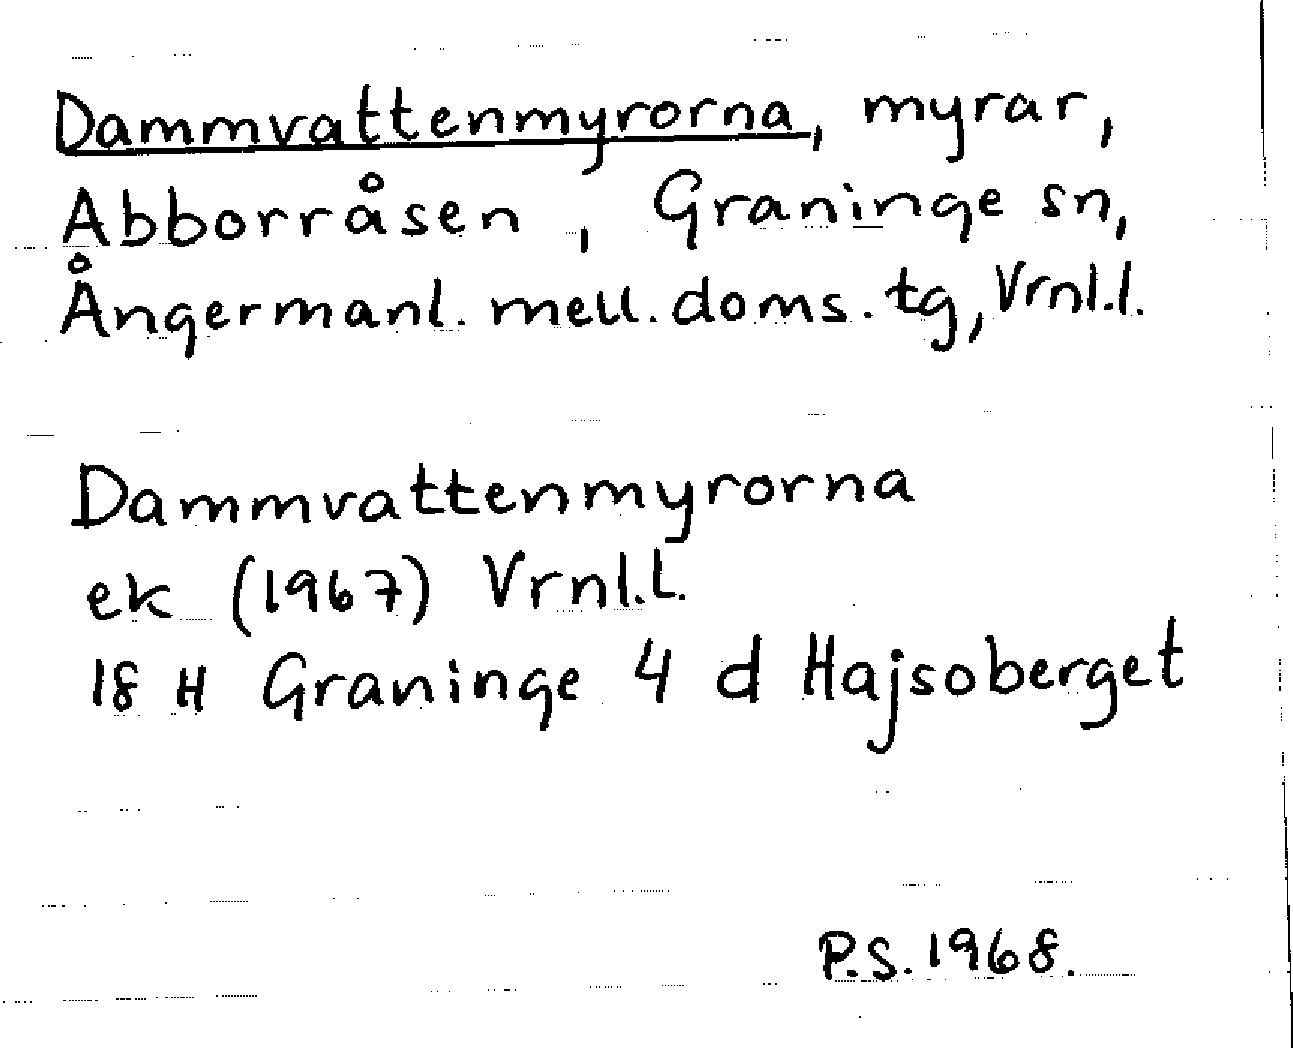 Dammvattenmyrorna, myrar,
Abborråsen, Graninge sn,
Ångermanl. mell. doms. tg, Vrnl.l.
Dammvattenmyrorna
ek (1967) Vrnl.l.
18 H Graninge 4 d Hajsoberget
P.S. 1968.